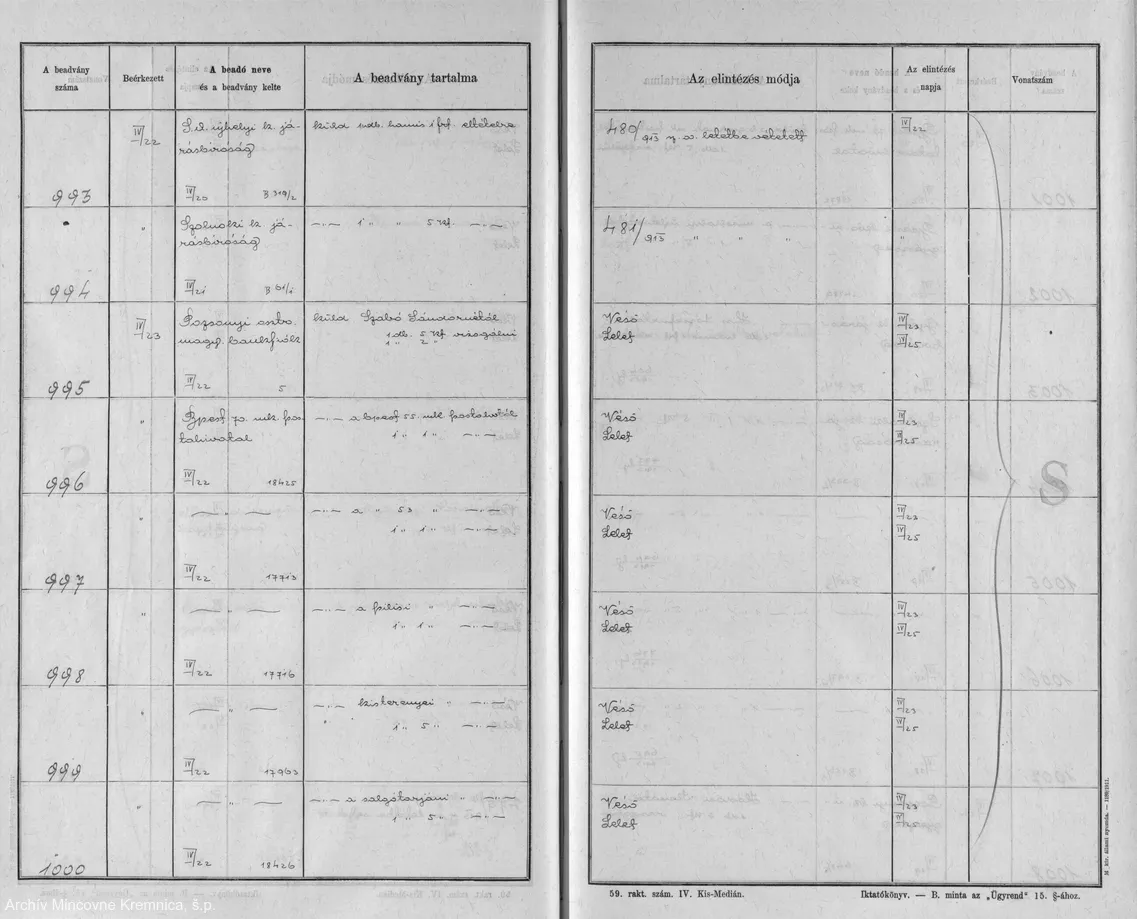 A beadvány száma
Beérkezett
A beadó neve és a beadvány kelte
A beadvány tartalma
Az elintézés módja
Az elintézés napja
Vonatszám
993
IV/22
S. a. újhelyi k. já-
rásbíróság
IV/20 B 319/2
küld 1 db. hamis 1 frf.
480/913 n. o. letétbe vétetett
IV/22
994
"
Szolnoki k. já-
rásbíróság
IV/21 B 61/1
—"— 1 " " 5 Kf. —"—
481/913 " " "
"
995
IV/23
Pozsonyi osztr.
magy. bankfiók
IV/22 5
küld Szabó Sándornétól
1 db. 5 Kf vizsgálni
1 " 2 "
Véső IV/23
Lelet IV/25
996
"
Bpest 70. mk. pos
tahivatal
IV/22 18425
—"— a bpest 55. mk postahiv.tól
1 " 1 " —"—
Véső IV/23
Lelet IV/25
997
"
— " —
IV/22 17713
—"— a " 53 " —"—
1 " 1 " —"—
Véső IV/23
Lelet IV/25
998
"
— " —
IV/22 17716
—"— a pilisi " —"—
1 " 1 " —"—
Véső IV/23
Lelet IV/25
999
"
— " —
IV/22 17963
—"— kisterenyei " —"—
1 " 5 " —"—
Véső IV/23
Lelet IV/25
1000
"
— " —
IV/22 18426
—"— a salgótarjáni " —"—
1 " 5 " —"—
Véső IV/23
Lelet IV/25
S
59. rakt. szám. IV. Kis-Medián.
Iktatókönyv. — B. minta az „Ügyrend" 15. §-ához.
Archív Mincovne Kremnica, š.p.